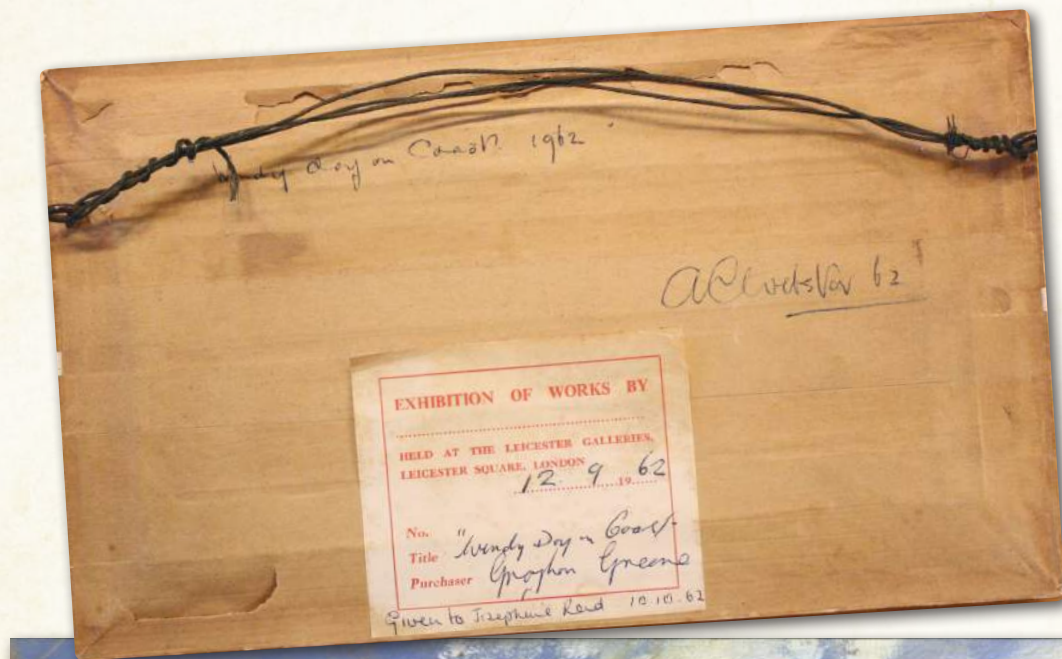 Windy day on Coast 1962
62
EXHIBITION OF WORKS BY
HELD AT THE LEICESTER GALLERIES,
LEICESTER SQUARE, LONDON
12. 9. 1962
No.
Title "Windy Day on Coast
Purchaser Graham Greene
Given to Josephine Reid 10.10.62